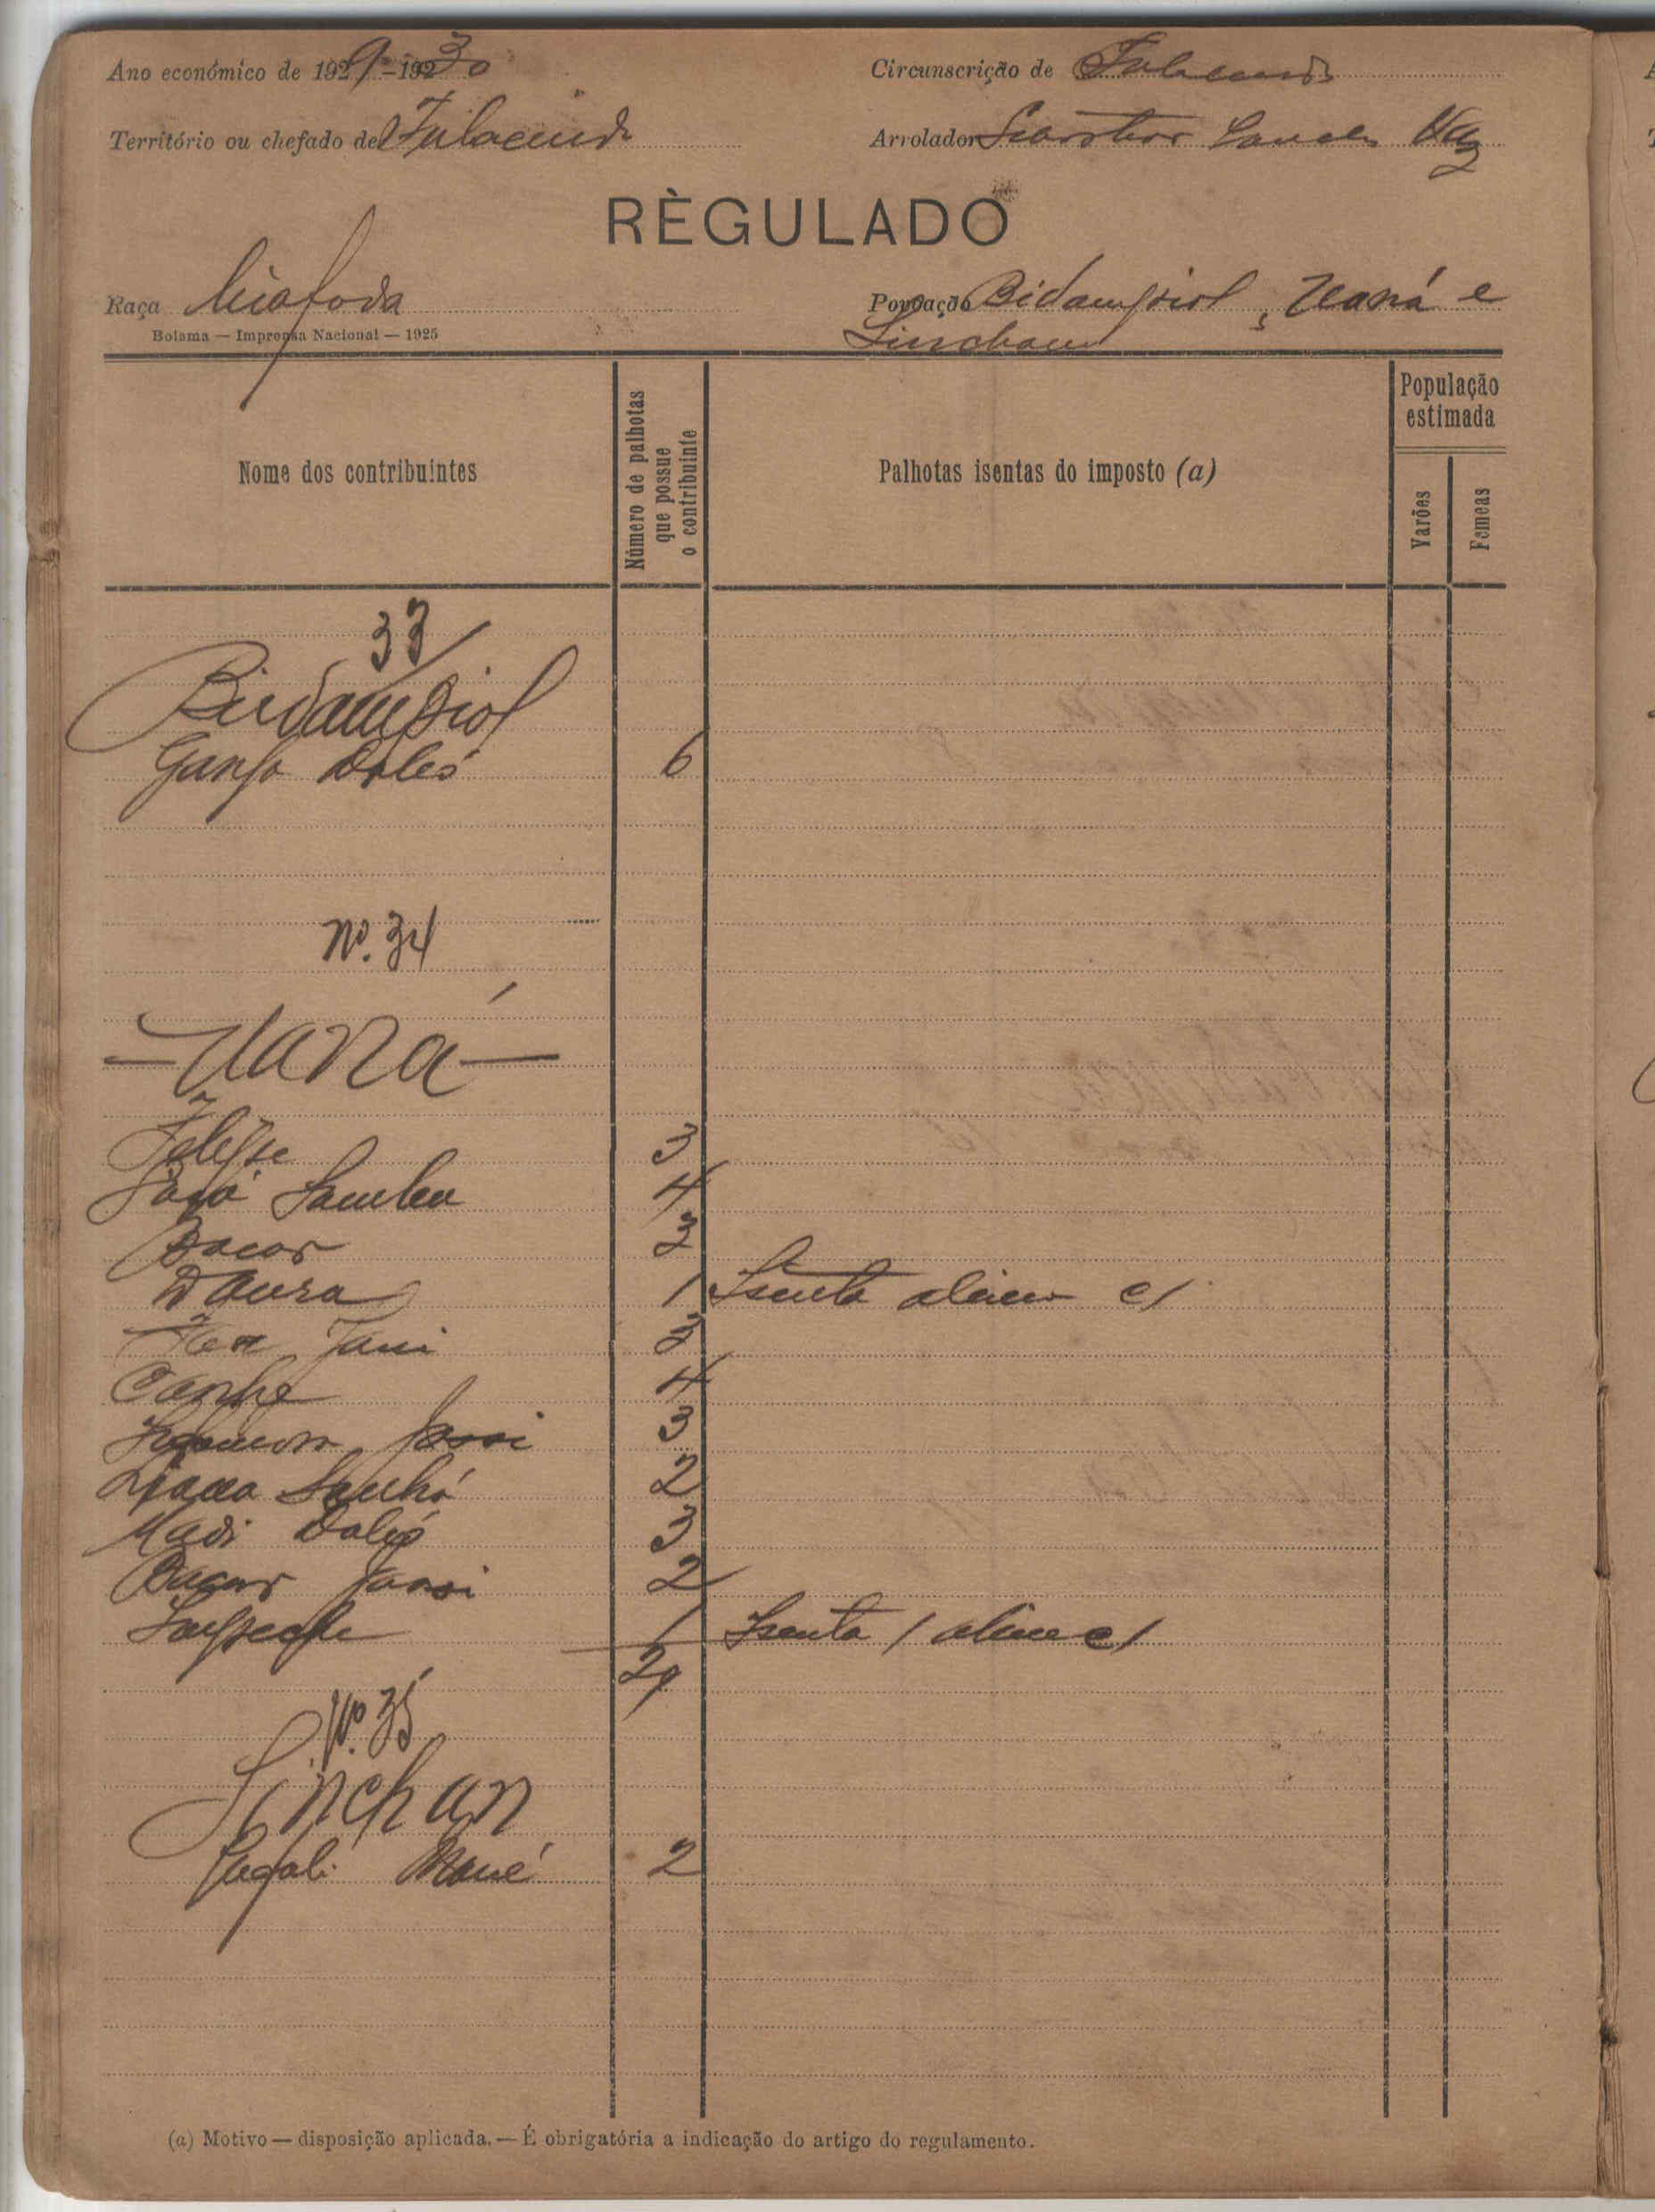 Ano económico de 1929-1930
Circunscrição de Fulacunda
Território ou chefado de Fulacunda
Arrolador Vaz
RÈGULADO
Raça Biafada
Povoação Bidampiol, Uaná e
Sinchan
Bolama — Imprensa Nacional — 1925
Nome dos contribuintes
Número de palhotas que possue o contribuinte
Palhotas isentas do imposto (a)
População estimada
Varões
Femeas
33
Bidampiol
6
Nº. 34
—Uaná—
Felippe 3
Samba 4
Bacar 3
Daura 1 Isenta alinea c/
Jani 3
4
3
Sanhá 2
Madi 3
Bacar 2
1 Isenta / alinea c/
29
Nº. 35
Sinchan
Mané 2
(a) Motivo — disposição aplicada. — É obrigatória a indicação do artigo do regulamento.